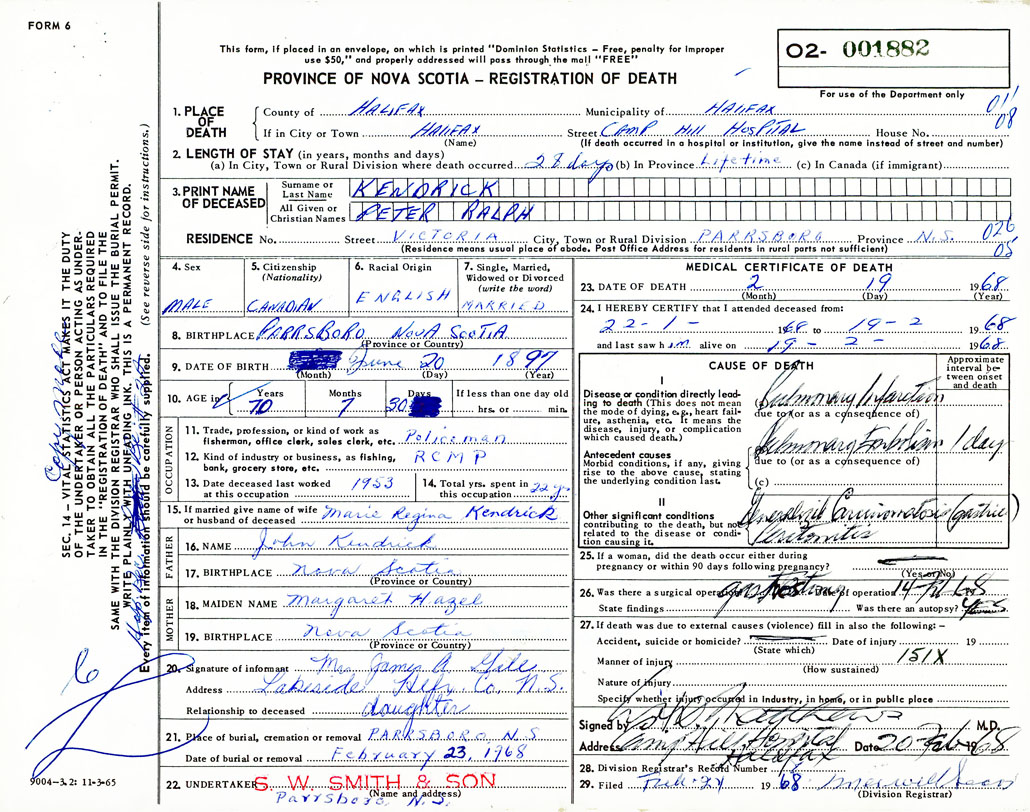 FORM 6
This form, if placed in an envelope, on which is printed "Dominion Statistics – Free, penalty for improper
use $50," and properly addressed will pass through the mail "FREE"
PROVINCE OF NOVA SCOTIA – REGISTRATION OF DEATH
O2- 001882
For use of the Department only
011
08
1. PLACE OF DEATH
County of HALIFAX Municipality of HALIFAX
If in City or Town HALIFAX Street CAMP HILL HOSPITAL House No.
(Name) (If death occurred in a hospital or institution, give the name instead of street and number)
2. LENGTH OF STAY (in years, months and days)
(a) In City, Town or Rural Division where death occurred 28 days (b) In Province Lifetime (c) In Canada (if immigrant)
3. PRINT NAME OF DECEASED
Surname or Last Name KENDRICK
All Given or Christian Names PETER RALPH
RESIDENCE No. Street VICTORIA City, Town or Rural Division PARRSBORO Province N.S.
(Residence means usual place of abode. Post Office Address for residents in rural parts not sufficient)
026
05
4. Sex
MALE
5. Citizenship
(Nationality)
CANADIAN
6. Racial Origin
ENGLISH
7. Single, Married,
Widowed or Divorced
(write the word)
MARRIED
8. BIRTHPLACE PARRSBORO NOVA SCOTIA
(Province or Country)
9. DATE OF BIRTH June 20 1897
(Month) (Day) (Year)
10. AGE in
Years Months Days If less than one day old
70 7 30 hrs. or min.
OCCUPATION
11. Trade, profession, or kind of work as
fisherman, office clerk, sales clerk, etc. Policeman
12. Kind of industry or business, as fishing,
bank, grocery store, etc. RCMP
13. Date deceased last worked
at this occupation 1953
14. Total yrs. spent in
this occupation 22 yrs
15. If married give name of wife
or husband of deceased Marie Regina Kendrick
FATHER
16. NAME John Kendrick
17. BIRTHPLACE Nova Scotia
(Province or Country)
MOTHER
18. MAIDEN NAME Margaret Hazel
19. BIRTHPLACE Nova Scotia
(Province or Country)
20. Signature of informant Mrs James A Gile
Address Lakeside Hfx. Co. N.S.
Relationship to deceased daughter
21. Place of burial, cremation or removal PARRSBORO N S
Date of burial or removal February 23, 1968
22. UNDERTAKER S. W. SMITH & SON
(Name and address)
Parrsboro, N.S.
MEDICAL CERTIFICATE OF DEATH
23. DATE OF DEATH 2 19 1968
(Month) (Day) (Year)
24. I HEREBY CERTIFY that I attended deceased from:
22-1- 1968 to 19-2 1968
and last saw him alive on 19-2- 1968
CAUSE OF DEATH
Approximate
interval be-
tween onset
and death
I
Disease or condition directly lead-
ing to death (This does not mean
the mode of dying, e.g., heart fail-
ure, asthenia, etc. It means the
disease, injury, or complication
which caused death.)
Pulmonary Infarction
due to (or as a consequence of)
Antecedent causes
Morbid conditions, if any, giving
rise to the above cause, stating
the underlying condition last.
Pulmonary Embolism 1 day
due to (or as a consequence of)
(c)
II
Other significant conditions
contributing to the death, but not
related to the disease or condi-
tion causing it.
Generalized Carcinomatosis (gastric)
Peritonitis
25. If a woman, did the death occur either during
pregnancy or within 90 days following pregnancy?
(Yes or No)
26. Was there a surgical operation? Date of operation 14 Feb 68
State findings Was there an autopsy? Yes
27. If death was due to external causes (violence) fill in also the following: –
Accident, suicide or homicide? Date of injury 19
(State which)
Manner of injury 151X
(How sustained)
Nature of injury
Specify whether injury occurred in industry, in home, or in public place
Signed by Matthews M.D.
Address Camp Hill Hospital Date 20 Feb 1968
Halifax
28. Division Registrar's Record Number
29. Filed 1968
(Division Registrar)
SEC. 14 – VITAL STATISTICS ACT MAKES IT THE DUTY
OF THE UNDERTAKER OR PERSON ACTING AS UNDER-
TAKER TO OBTAIN ALL THE PARTICULARS REQUIRED
IN THE "REGISTRATION OF DEATH" AND TO FILE THE
SAME WITH THE DIVISION REGISTRAR WHO SHALL ISSUE THE BURIAL PERMIT.
WRITE PLAINLY WITH UNFADING INK. THIS IS A PERMANENT RECORD.
Every item of information should be carefully supplied. (See reverse side for instructions.)
9004–3.2: 11-3-65